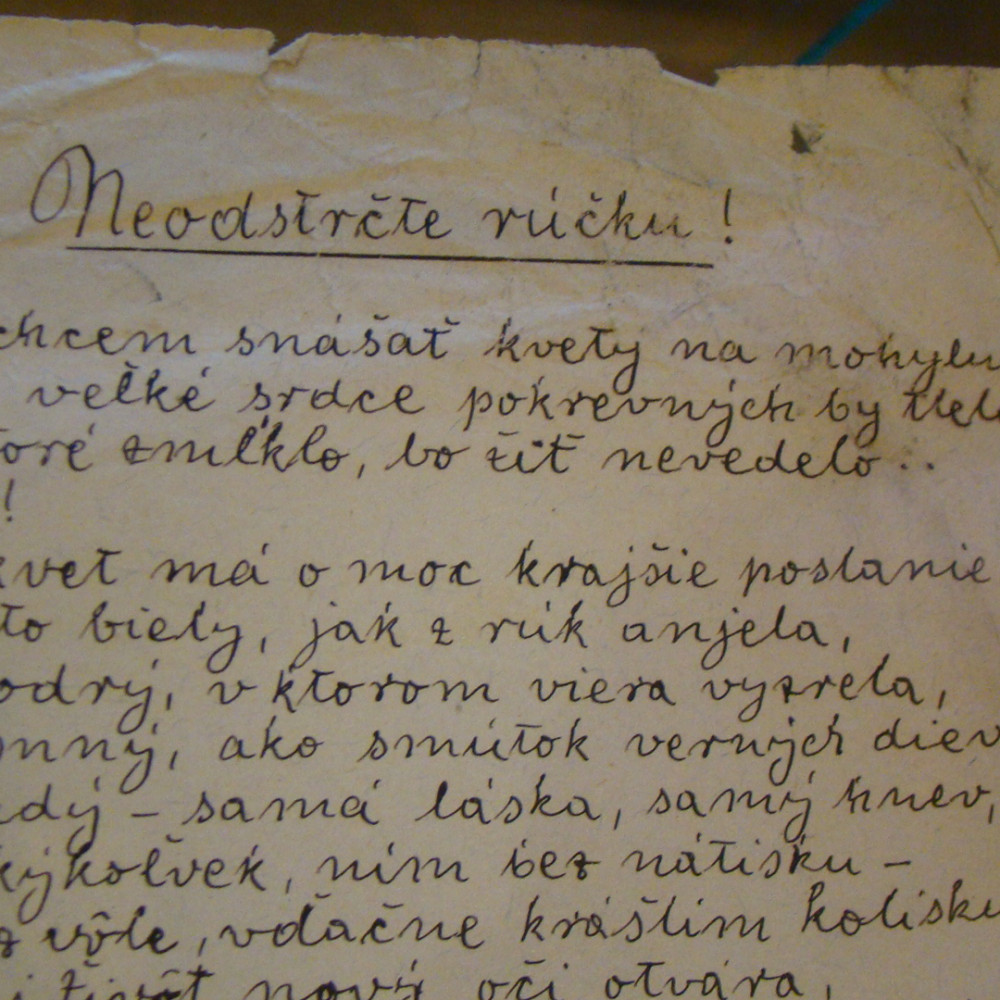 Neodstrčte rúčku!
chcem snášať kvety na mohylu
veľké srdce pokrevných by tlelo
toré zmĺklo, bo žiť nevedelo..
!
kvet má o moc krajšie poslanie
to biely, jak z rúk anjela,
odrý, v ktorom viera vyzrela,
mný, ako smútok verných diev
edý – samá láska, samý hnev,
kýkoľvek, ním bez nátisku –
z vôle, vďačne krášlim kolísku
i život nový oči otvára,